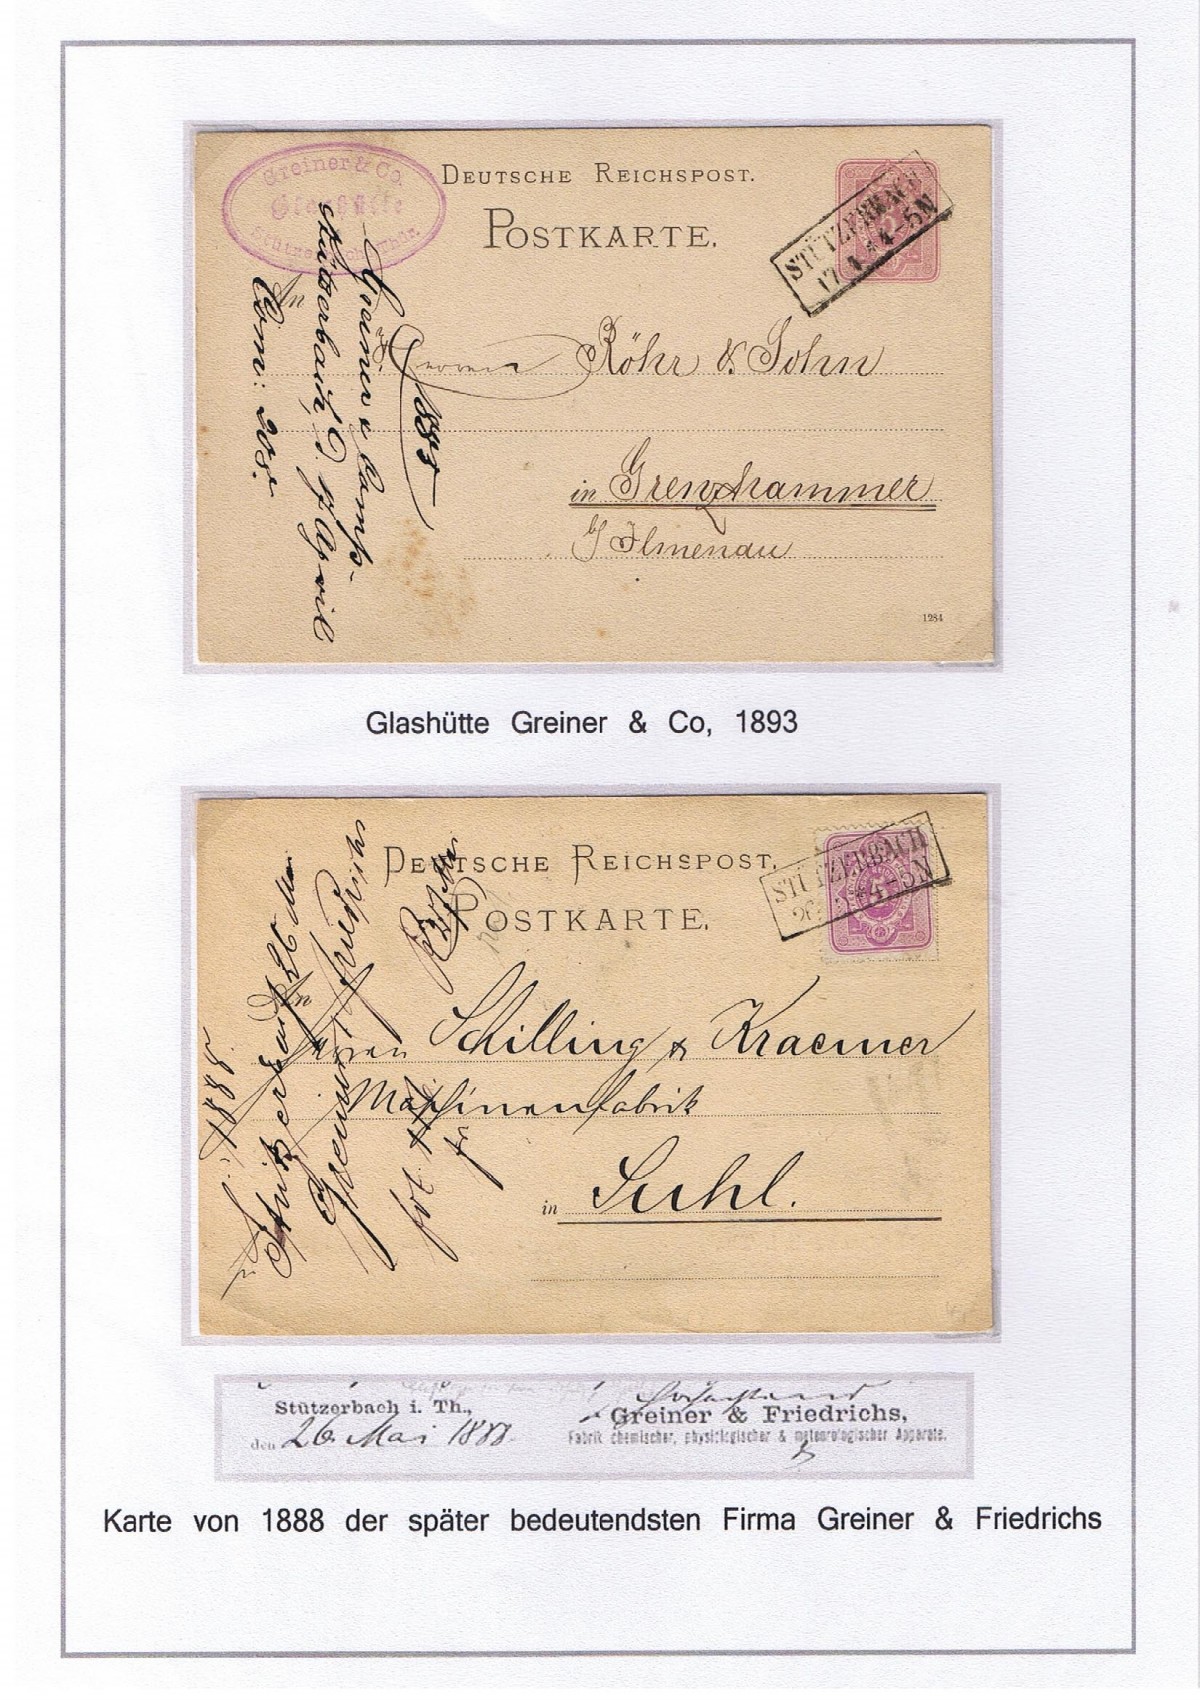 Greiner & Co.
Glashütte
Stützerbach Thür.
DEUTSCHE REICHSPOST.
POSTKARTE.
STÜTZERBACH
17 4 * 4-5N
An
Herren Röhr & Sohn
in Grenzhammer
b/ Ilmenau
1284
1885
Greiner & Comp.
Stützerbach, d. 17 April
Com: 208.
Glashütte Greiner & Co, 1893
DEUTSCHE REICHSPOST.
POSTKARTE.
STÜTZERBACH
26 * 4-5N
5
An
Herren Schilling & Kraemer
Maschinenfabrik
in Suhl.
1888.
Stützerbach 26 Mai
Greiner & Friedrichs
Stützerbach i. Th.,
den 26. Mai 1888.
Greiner & Friedrichs,
Fabrik chemischer, physiologischer & meteorologischer Apparate.
Karte von 1888 der später bedeutendsten Firma Greiner & Friedrichs